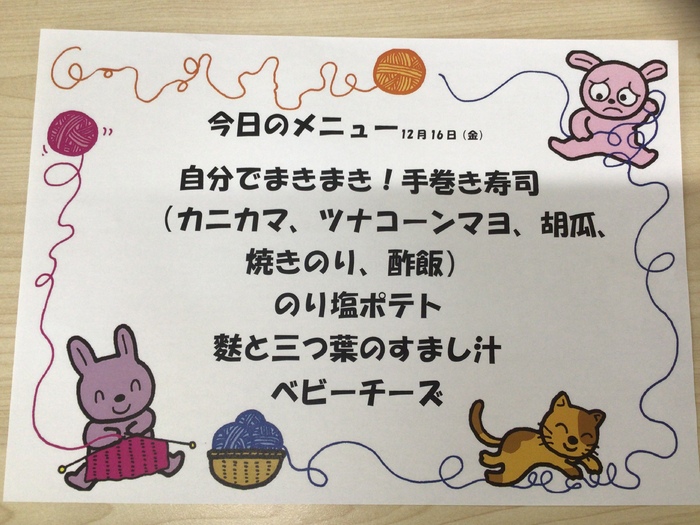 今日のメニュー12月16日(金)
自分でまきまき!手巻き寿司
(カニカマ、ツナコーンマヨ、胡瓜、
焼きのり、酢飯)
のり塩ポテト
麩と三つ葉のすまし汁
ベビーチーズ